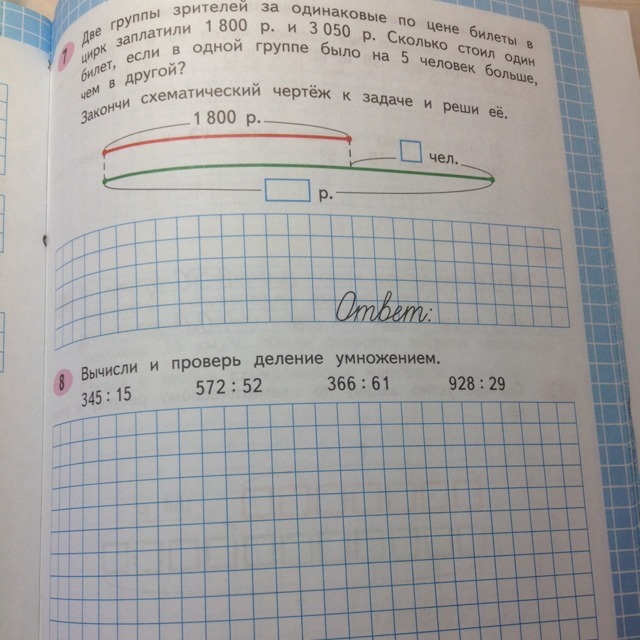 7 Две группы зрителей за одинаковые по цене билеты в
цирк заплатили 1 800 р. и 3 050 р. Сколько стоил один
билет, если в одной группе было на 5 человек больше,
чем в другой?
Закончи схематический чертёж к задаче и реши её.
1 800 р.
чел.
р.
Ответ:
8 Вычисли и проверь деление умножением.
345 : 15 572 : 52 366 : 61 928 : 29